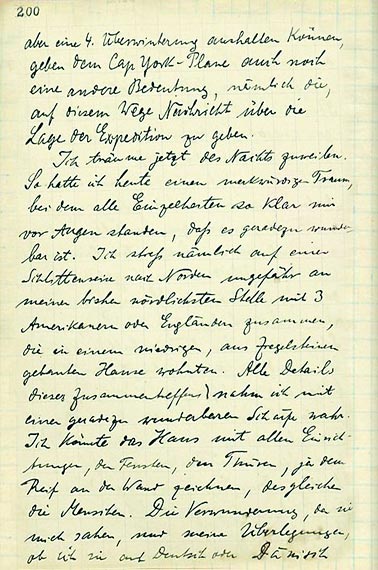 200
aber eine 4. Überwinterung aushalten können,
geben dem Cap York-Plane auch noch
eine andere Bedeutung, nämlich die,
auf diesem Wege Nachricht über die
Lage der Expedition zu geben.
Ich träume jetzt des Nachts zuweilen.
So hatte ich heute einen merkwürdigen Traum,
bei dem alle Einzelheiten so klar mir
vor Augen standen, daß es geradezu wunder-
bar ist. Ich stieß nämlich auf einer
Schlittenreise nach Norden ungefähr an
meiner bisher nördlichsten Stelle mit 3
Amerikanern oder Engländern zusammen,
die in einem niedrigen, aus Ziegelsteinen
gebauten Hause wohnten. Alle Details
dieses Zusammentreffens nahm ich mit
einer geradezu wunderbaren Schärfe wahr.
Ich könnte das Haus mit allen Einrich-
tungen, den Fenstern, den Thüren, ja dem
Reif an der Wand zeichnen, desgleichen
die Menschen. Die Verwunderung, da sie
mich sahen, und meine Überlegungen,
ob ich sie auf Deutsch oder Dänisch